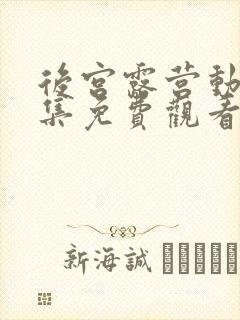 後宮露营動
集免費觀看
新海誠